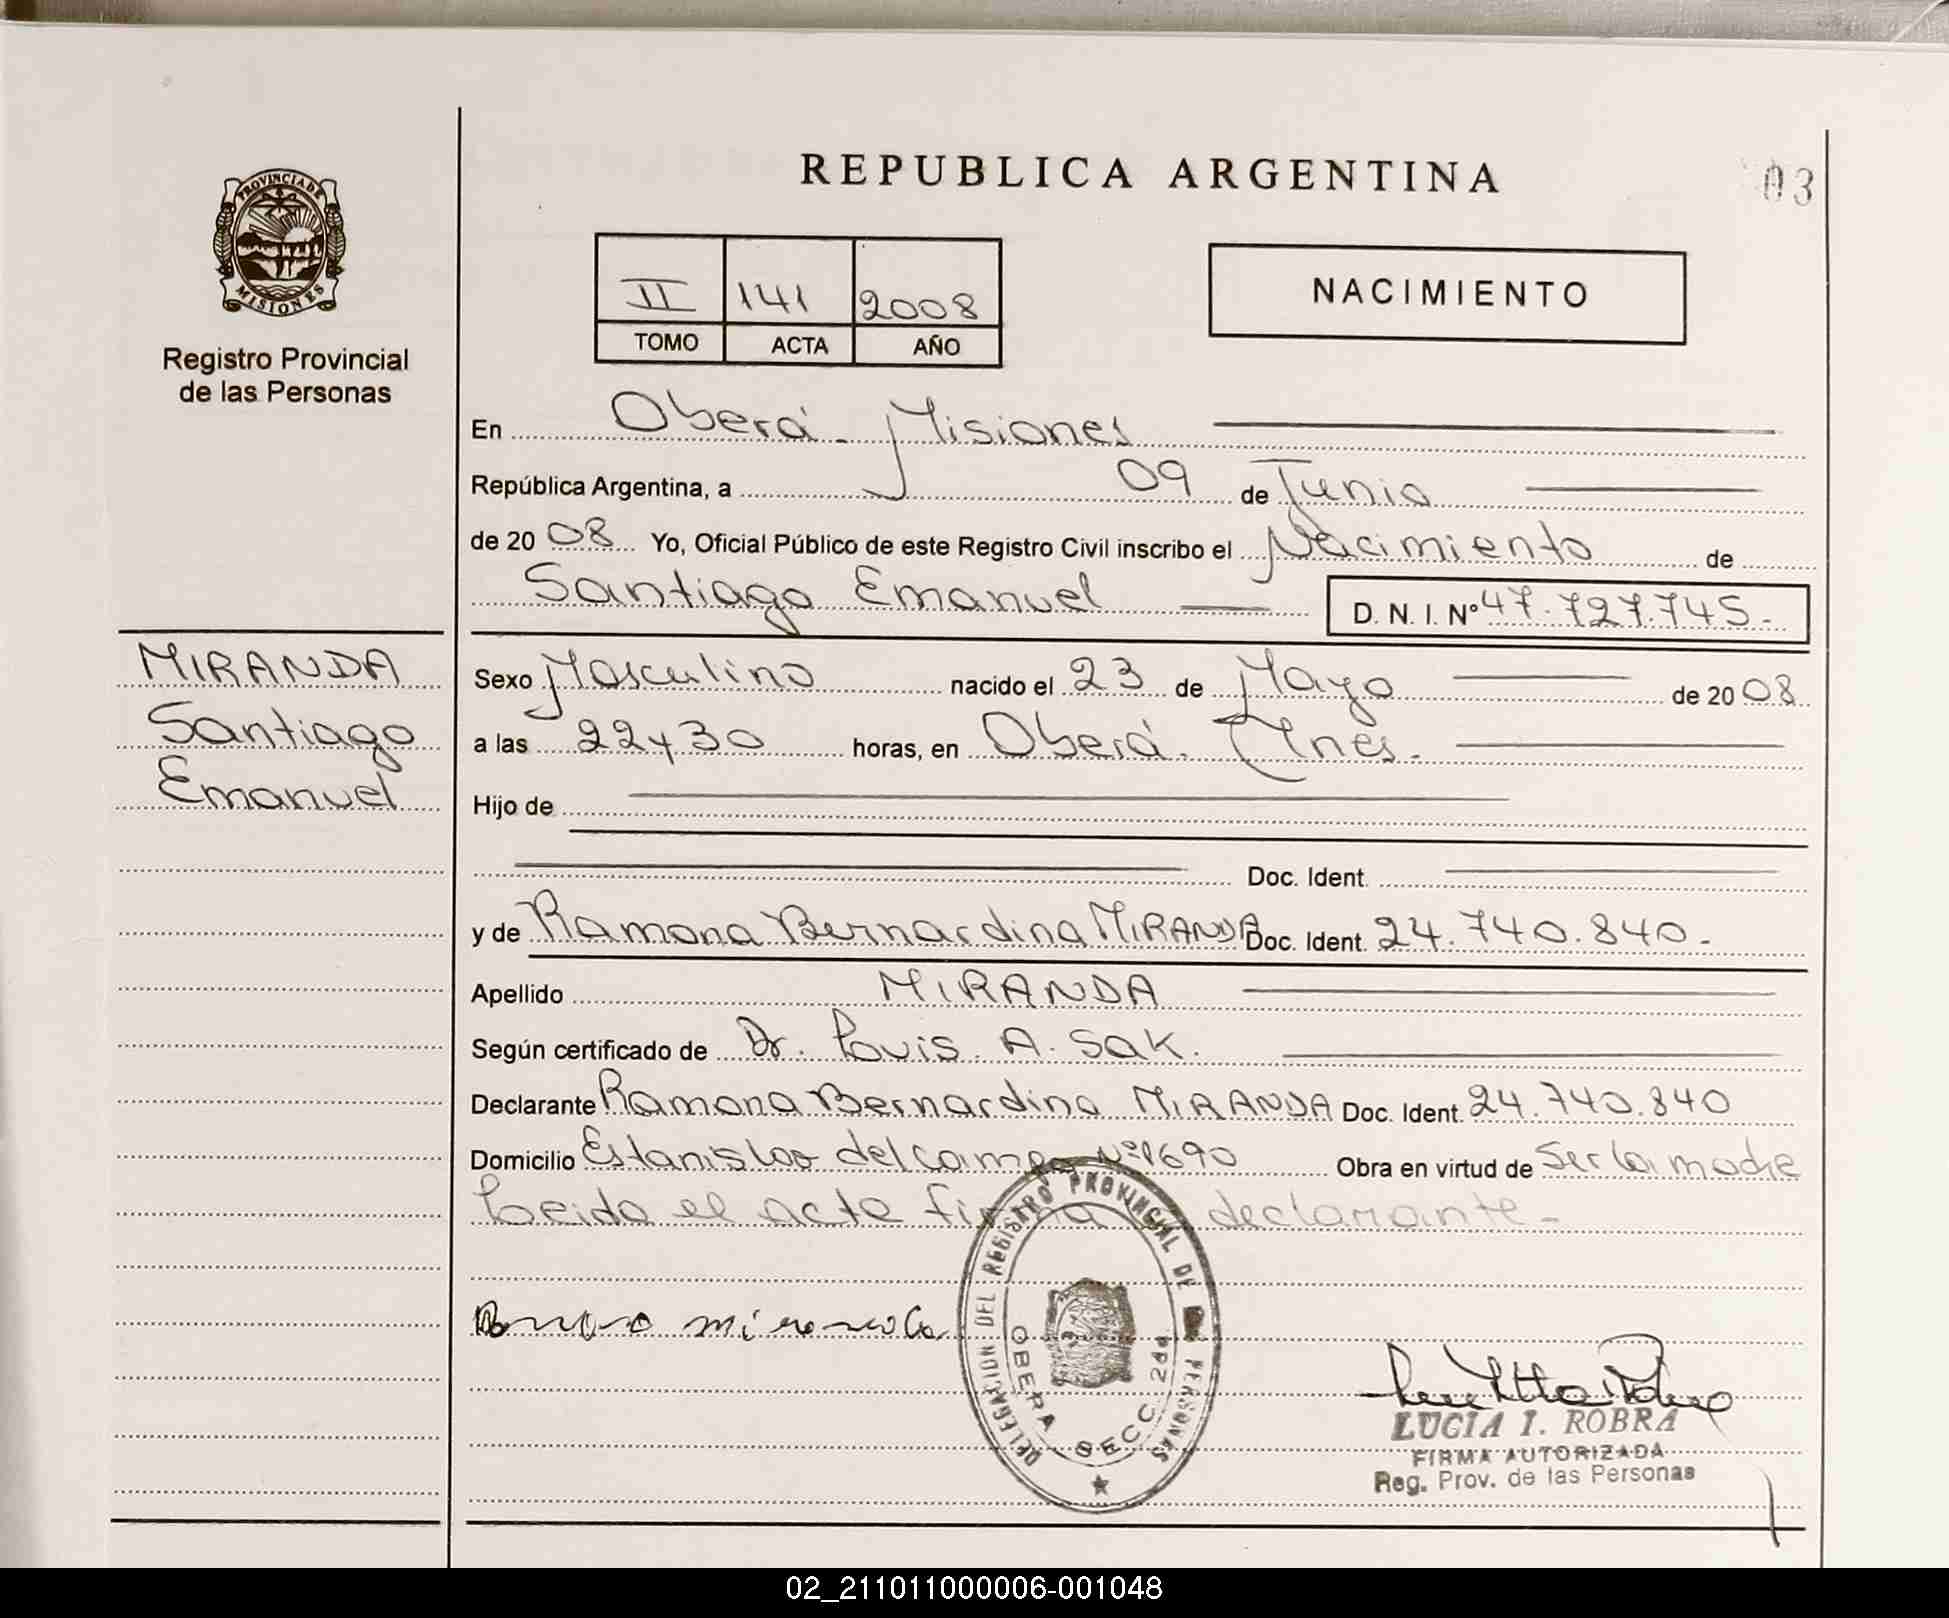 REPUBLICA ARGENTINA
03
PROVINCIA DE
MISIONES
Registro Provincial
de las Personas
II 141 2008
TOMO ACTA AÑO
NACIMIENTO
En Oberá - Misiones
República Argentina, a 09 de Junio
de 2008 Yo, Oficial Público de este Registro Civil inscribo el Nacimiento de
Santiago Emanuel D. N. I. Nº 47.727.745.-
MIRANDA
Santiago
Emanuel
Sexo Masculino nacido el 23 de Mayo de 2008
a las 22 y 30 horas, en Oberá. Mnes.-
Hijo de
Doc. Ident.
y de Ramona Bernardina MIRANDA Doc. Ident. 24.740.840.-
Apellido MIRANDA
Según certificado de Dr. Luis A. Sak.
Declarante Ramona Bernardina MIRANDA Doc. Ident. 24.740.840
Domicilio Estanislao del campo Nº1690 Obra en virtud de Ser la madre
Leida el acta firma declarante-
DELEGACION DEL REGISTRO PROVINCIAL DE PERSONAS
OBERA SECC. 2da
LUCIA I. ROBRA
FIRMA AUTORIZADA
Reg. Prov. de las Personas
02_211011000006-001048